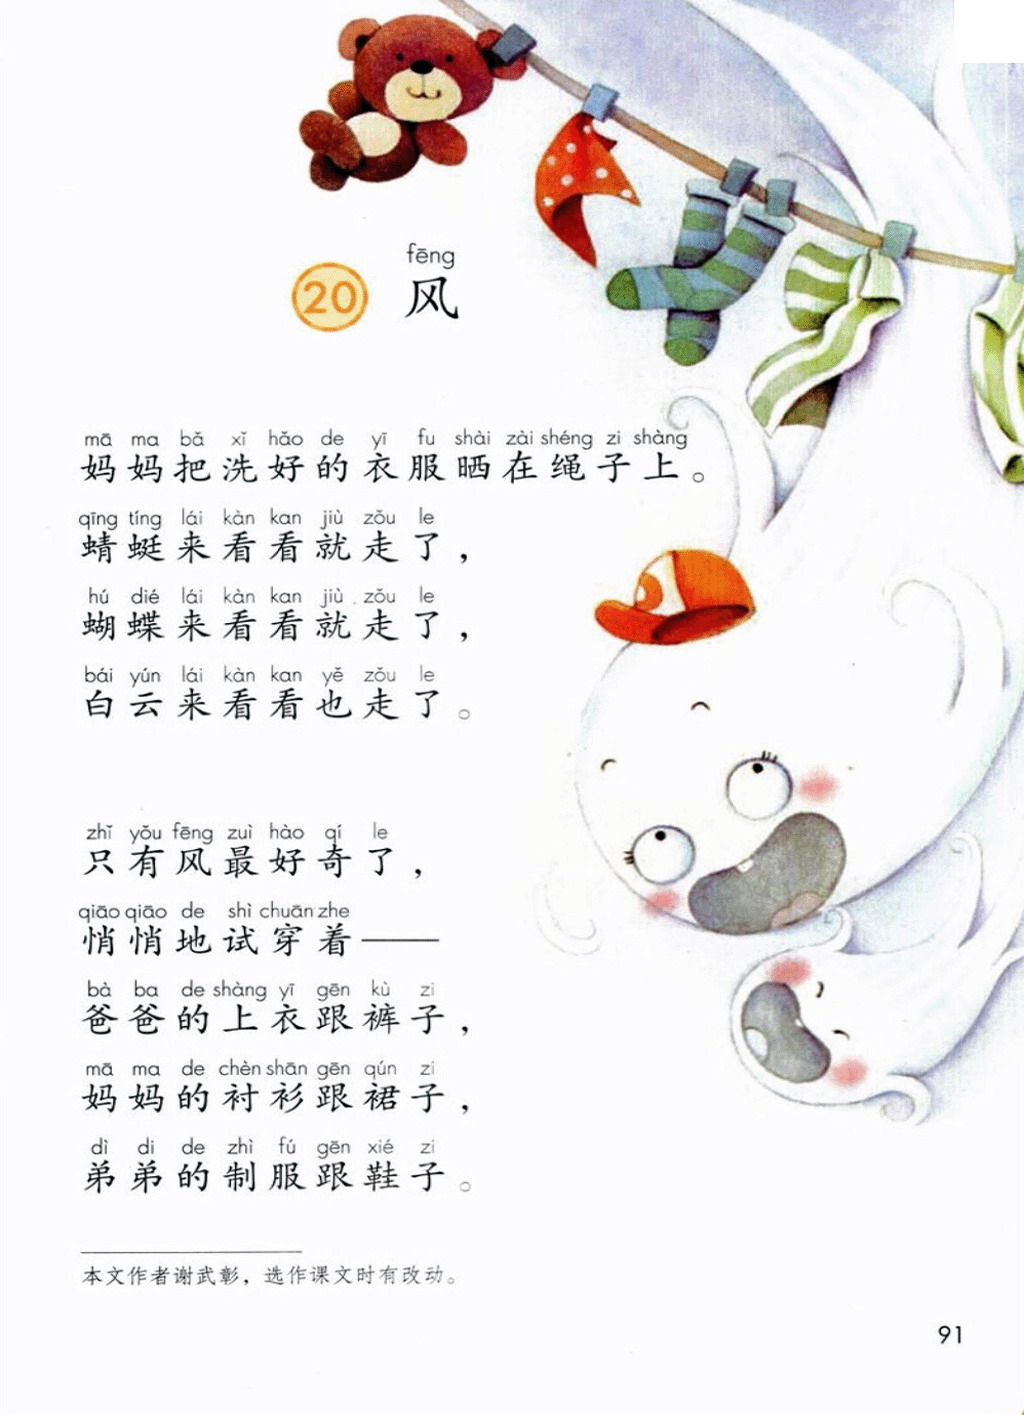 fēng
20 风
mā ma bǎ xǐ hǎo de yī fu shài zài shéng zi shàng
妈妈把洗好的衣服晒在绳子上。
qīng tíng lái kàn kan jiù zǒu le
蜻蜓来看看就走了，
hú dié lái kàn kan jiù zǒu le
蝴蝶来看看就走了，
bái yún lái kàn kan yě zǒu le
白云来看看也走了。
zhǐ yǒu fēng zuì hào qí le
只有风最好奇了，
qiāo qiāo de shì chuān zhe
悄悄地试穿着——
bà ba de shàng yī gēn kù zi
爸爸的上衣跟裤子，
mā ma de chèn shān gēn qún zi
妈妈的衬衫跟裙子，
dì di de zhì fú gēn xié zi
弟弟的制服跟鞋子。
本文作者谢武彰，选作课文时有改动。
91